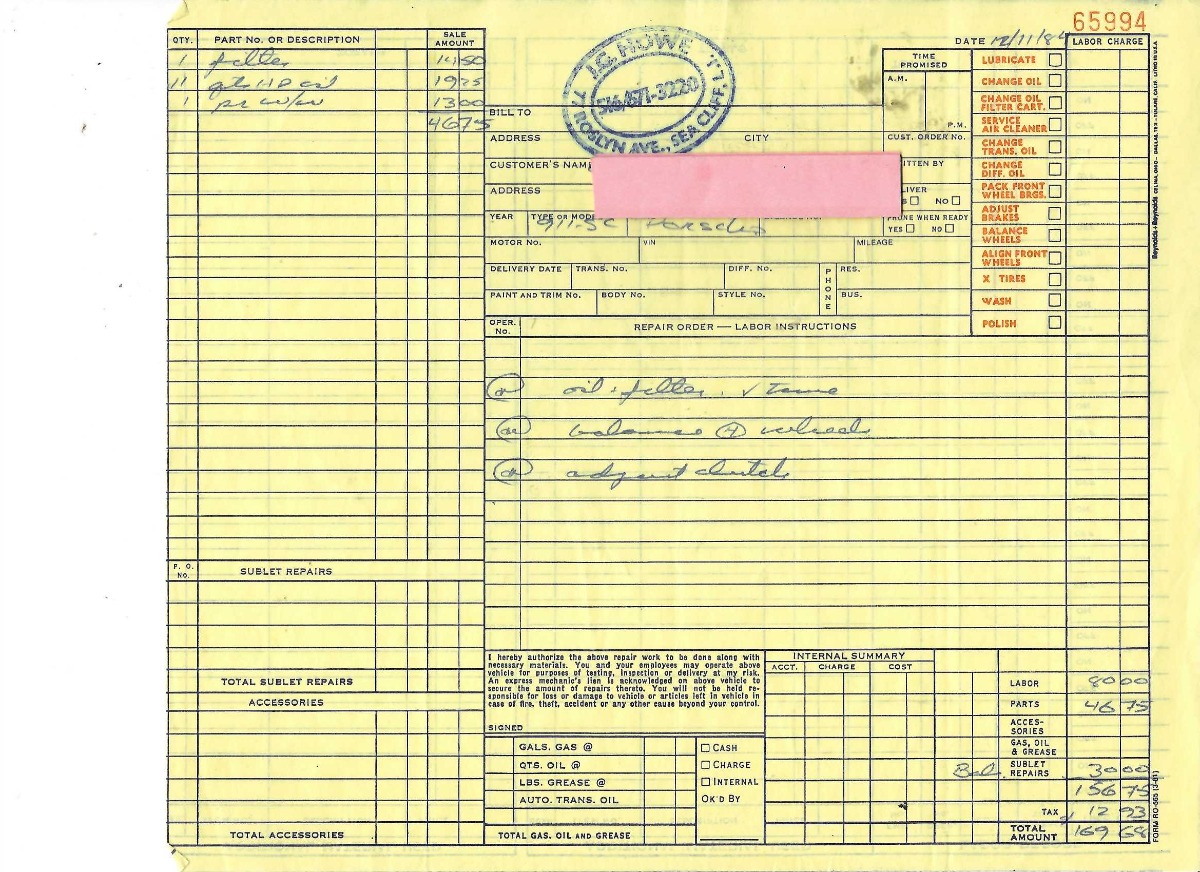 65994
QTY. PART NO. OR DESCRIPTION SALE AMOUNT
1 filter 14 50
11 qts HP oil 19 25
1 pr w/w 13 00
46 75
P. O. NO. SUBLET REPAIRS
TOTAL SUBLET REPAIRS
ACCESSORIES
TOTAL ACCESSORIES
J.C. HOWE
516/671-3220
77 ROSLYN AVE., SEA CLIFF, L.I.
DATE 12/11/84
TIME PROMISED
A.M.
P.M.
BILL TO
ADDRESS CITY CUST. ORDER NO.
CUSTOMER'S NAM ITTEN BY
ADDRESS LIVER
S NO
YEAR TYPE OR MODE PHONE WHEN READY
911-SC Porsche YES NO
MOTOR NO. VIN MILEAGE
DELIVERY DATE TRANS. NO. DIFF. NO. PHONE RES.
PAINT AND TRIM NO. BODY NO. STYLE NO. BUS.
OPER. NO. REPAIR ORDER — LABOR INSTRUCTIONS
LABOR CHARGE
LUBRICATE
CHANGE OIL
CHANGE OIL FILTER CART.
SERVICE AIR CLEANER
CHANGE TRANS. OIL
CHANGE DIFF. OIL
PACK FRONT WHEEL BRGS.
ADJUST BRAKES
BALANCE WHEELS
ALIGN FRONT WHEELS
X TIRES
WASH
POLISH
oil + filter. √ tune
balance 4 wheels
adjust clutch
I hereby authorize the above repair work to be done along with
necessary materials. You and your employees may operate above
vehicle for purposes of testing, inspection or delivery at my risk.
An express mechanic's lien is acknowledged on above vehicle to
secure the amount of repairs thereto. You will not be held re-
sponsible for loss or damage to vehicle or articles left in vehicle in
case of fire, theft, accident or any other cause beyond your control.
SIGNED
GALS. GAS @
QTS. OIL @
LBS. GREASE @
AUTO. TRANS. OIL
TOTAL GAS, OIL AND GREASE
CASH
CHARGE
INTERNAL
OK'D BY
INTERNAL SUMMARY
ACCT. CHARGE COST
LABOR 80 00
PARTS 46 75
ACCES-SORIES
GAS, OIL & GREASE
Bal. SUBLET REPAIRS 30 00
156 75
TAX 12 93
TOTAL AMOUNT 169 68
FORM RO-565 (3-81)